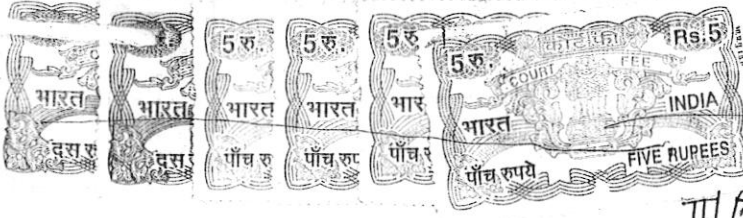 भारत
दस रु
भारत
दस रु
5 रु.
भारत
पाँच रु
5 रु.
भारत
पाँच रुप
5 रु
भार
पाँच रु
5 रु.
कोर्ट फी
Rs.5
COURT FEE
भारत
INDIA
पाँच रुपये
FIVE RUPEES